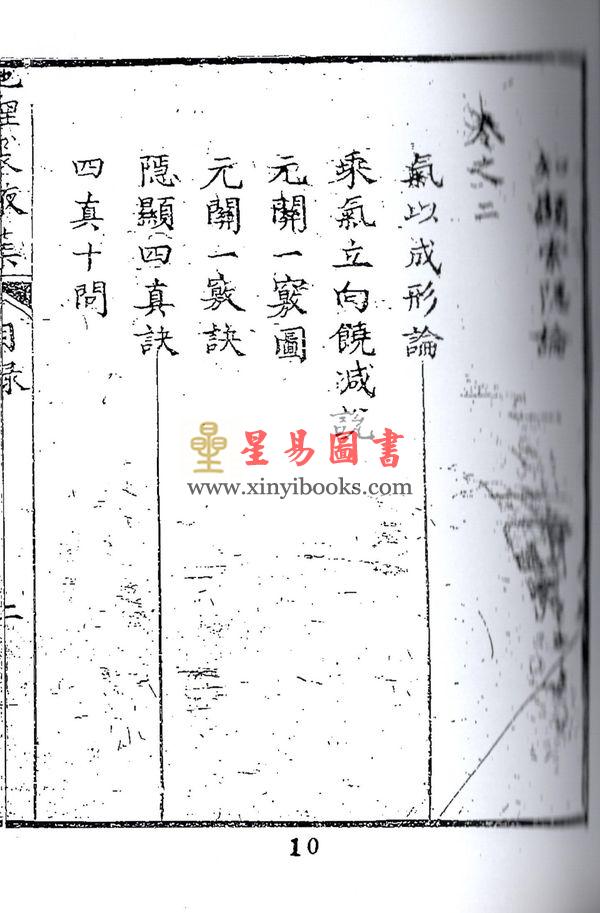 卷之二
氣以成形論
乘氣立向饒減說
元關一竅圖
元關一竅訣
隱顯四真訣
四真十問
目錄
二
星易圖書
www.xinyibooks.com
10